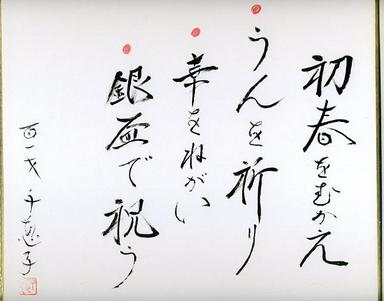 初春をむかえ
うんを祈り
幸をねがい
銀盃で祝う
百一才千恵子